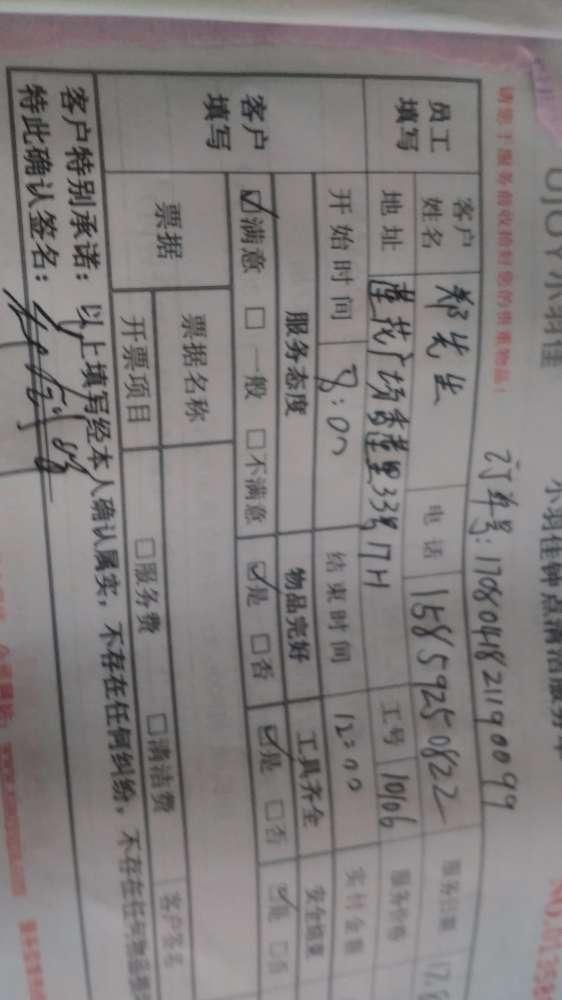 UJOY小羽佳
小羽佳钟点清洁服务单
请您于服务前收拾好您的贵重物品!
订单号:1708041821190099
员工填写
客户姓名 郑先生 电话 15859250822 服务日期
地址 莲花广场香莲里33号17H 工号 10106 服务价格
开始时间 8:00 结束时间 12:00 实付金额
客户填写
服务态度 物品完好 工具齐全 安全检查
☑满意 □一般 □不满意 ☑是 □否 ☑是 □否 ☑是 □否
票据 票据名称 客户签名
开票项目 □服务费 □清洁费
客户特别承诺:以上填写经本人确认属实,不存在任何纠纷,不存在任何物品
特此确认签名: